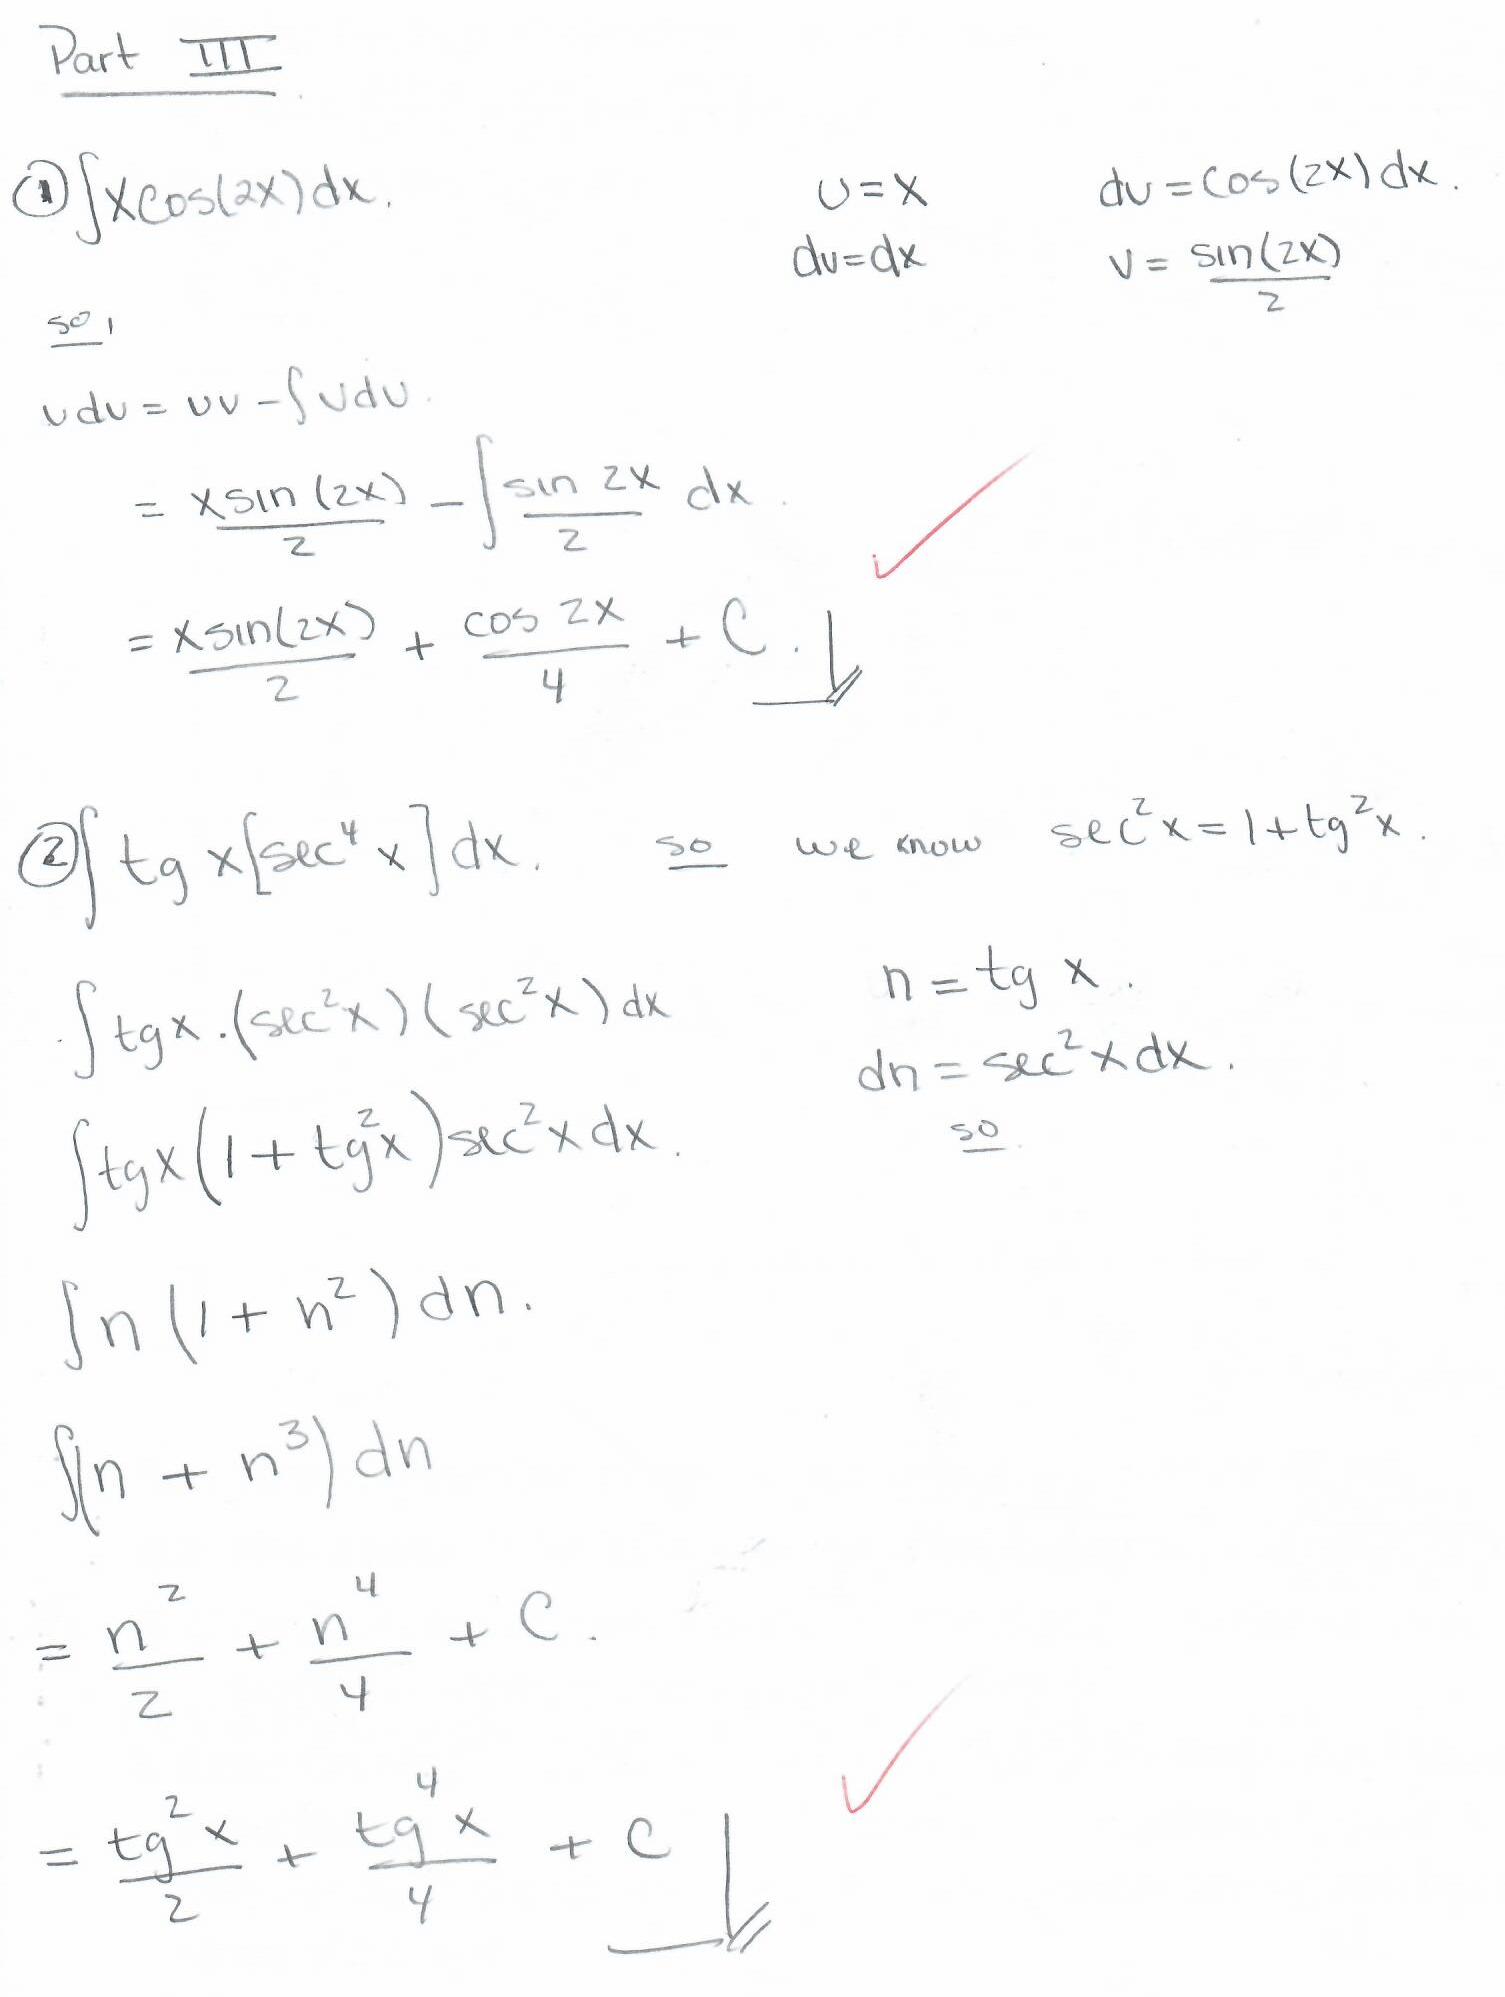 Part III
① ∫xcos(2x)dx. u=x dv=cos(2x)dx.
du=dx v= sin(2x)/2
so,
udv = uv - ∫vdu.
= xsin(2x)/2 - ∫ sin 2x/2 dx.
= xsin(2x)/2 + cos 2x/4 + C.
② ∫ tg x[sec⁴ x]dx. so we know sec²x = 1+tg²x.
n = tg x.
∫ tgx.(sec²x)(sec²x)dx
dn = sec²x dx.
so
∫tgx(1 + tg²x)sec²x dx.
∫n(1 + n²)dn.
∫(n + n³)dn
= n²/2 + n⁴/4 + C.
= tg²x/2 + tg⁴x/4 + C